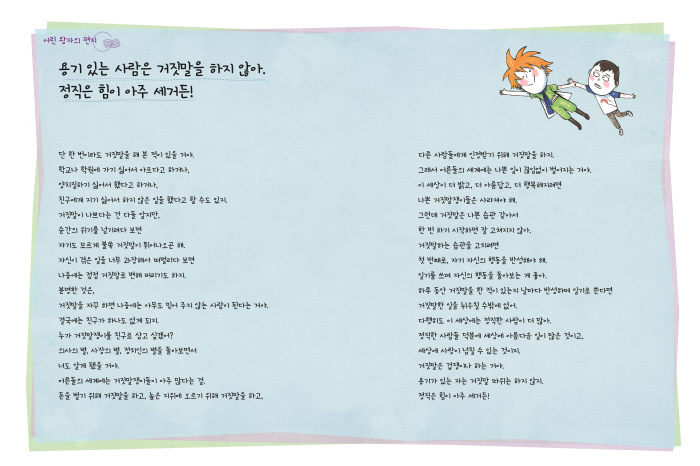 어린 왕자의 편지
용기 있는 사람은 거짓말을 하지 않아.
정직은 힘이 아주 세거든!
단 한 번이라도 거짓말을 해 본 적이 있을 거야.
학교나 학원에 가기 싫어서 아프다고 하거나,
양치질하기 싫어서 했다고 하거나,
친구에게 지기 싫어서 하지 않은 일을 했다고 할 수도 있지.
거짓말이 나쁘다는 건 다들 알지만,
순간의 위기를 넘기려다 보면
자기도 모르게 불쑥 거짓말이 튀어나오곤 해.
자신이 겪은 일을 너무 과장해서 떠벌리다 보면
나중에는 점점 거짓말로 변해 버리기도 하지.
분명한 것은,
거짓말을 자꾸 하면 나중에는 아무도 믿어 주지 않는 사람이 된다는 거야.
결국에는 친구가 하나도 없게 되지.
누가 거짓말쟁이를 친구로 삼고 싶겠어?
의사의 별, 사장의 별, 정치인의 별을 돌아보면서
너도 알게 됐을 거야.
어른들의 세계에는 거짓말쟁이들이 아주 많다는 걸.
돈을 벌기 위해 거짓말을 하고, 높은 지위에 오르기 위해 거짓말을 하고,
다른 사람들에게 인정받기 위해 거짓말을 하지.
그래서 어른들의 세계에는 나쁜 일이 끊임없이 벌어지는 거야.
이 세상이 더 밝고, 더 아름답고, 더 행복해지려면
나쁜 거짓말쟁이들은 사라져야 해.
그런데 거짓말은 나쁜 습관 같아서
한 번 하기 시작하면 잘 고쳐지지 않아.
거짓말하는 습관을 고치려면
첫 번째로, 자기 자신의 행동을 반성해야 해.
일기를 쓰며 자신의 행동을 돌아보는 게 좋아.
하루 동안 거짓말을 한 적이 있는지 날마다 반성하며 일기로 쓴다면
거짓말한 일을 뉘우칠 수밖에 없어.
다행히도 이 세상에는 정직한 사람이 더 많아.
정직한 사람들 덕분에 세상에 아름다운 일이 많은 것이고,
세상에 사랑이 넘칠 수 있는 것이지.
거짓말은 겁쟁이나 하는 거야.
용기가 있는 자는 거짓말 따위는 하지 않지.
정직은 힘이 아주 세거든!